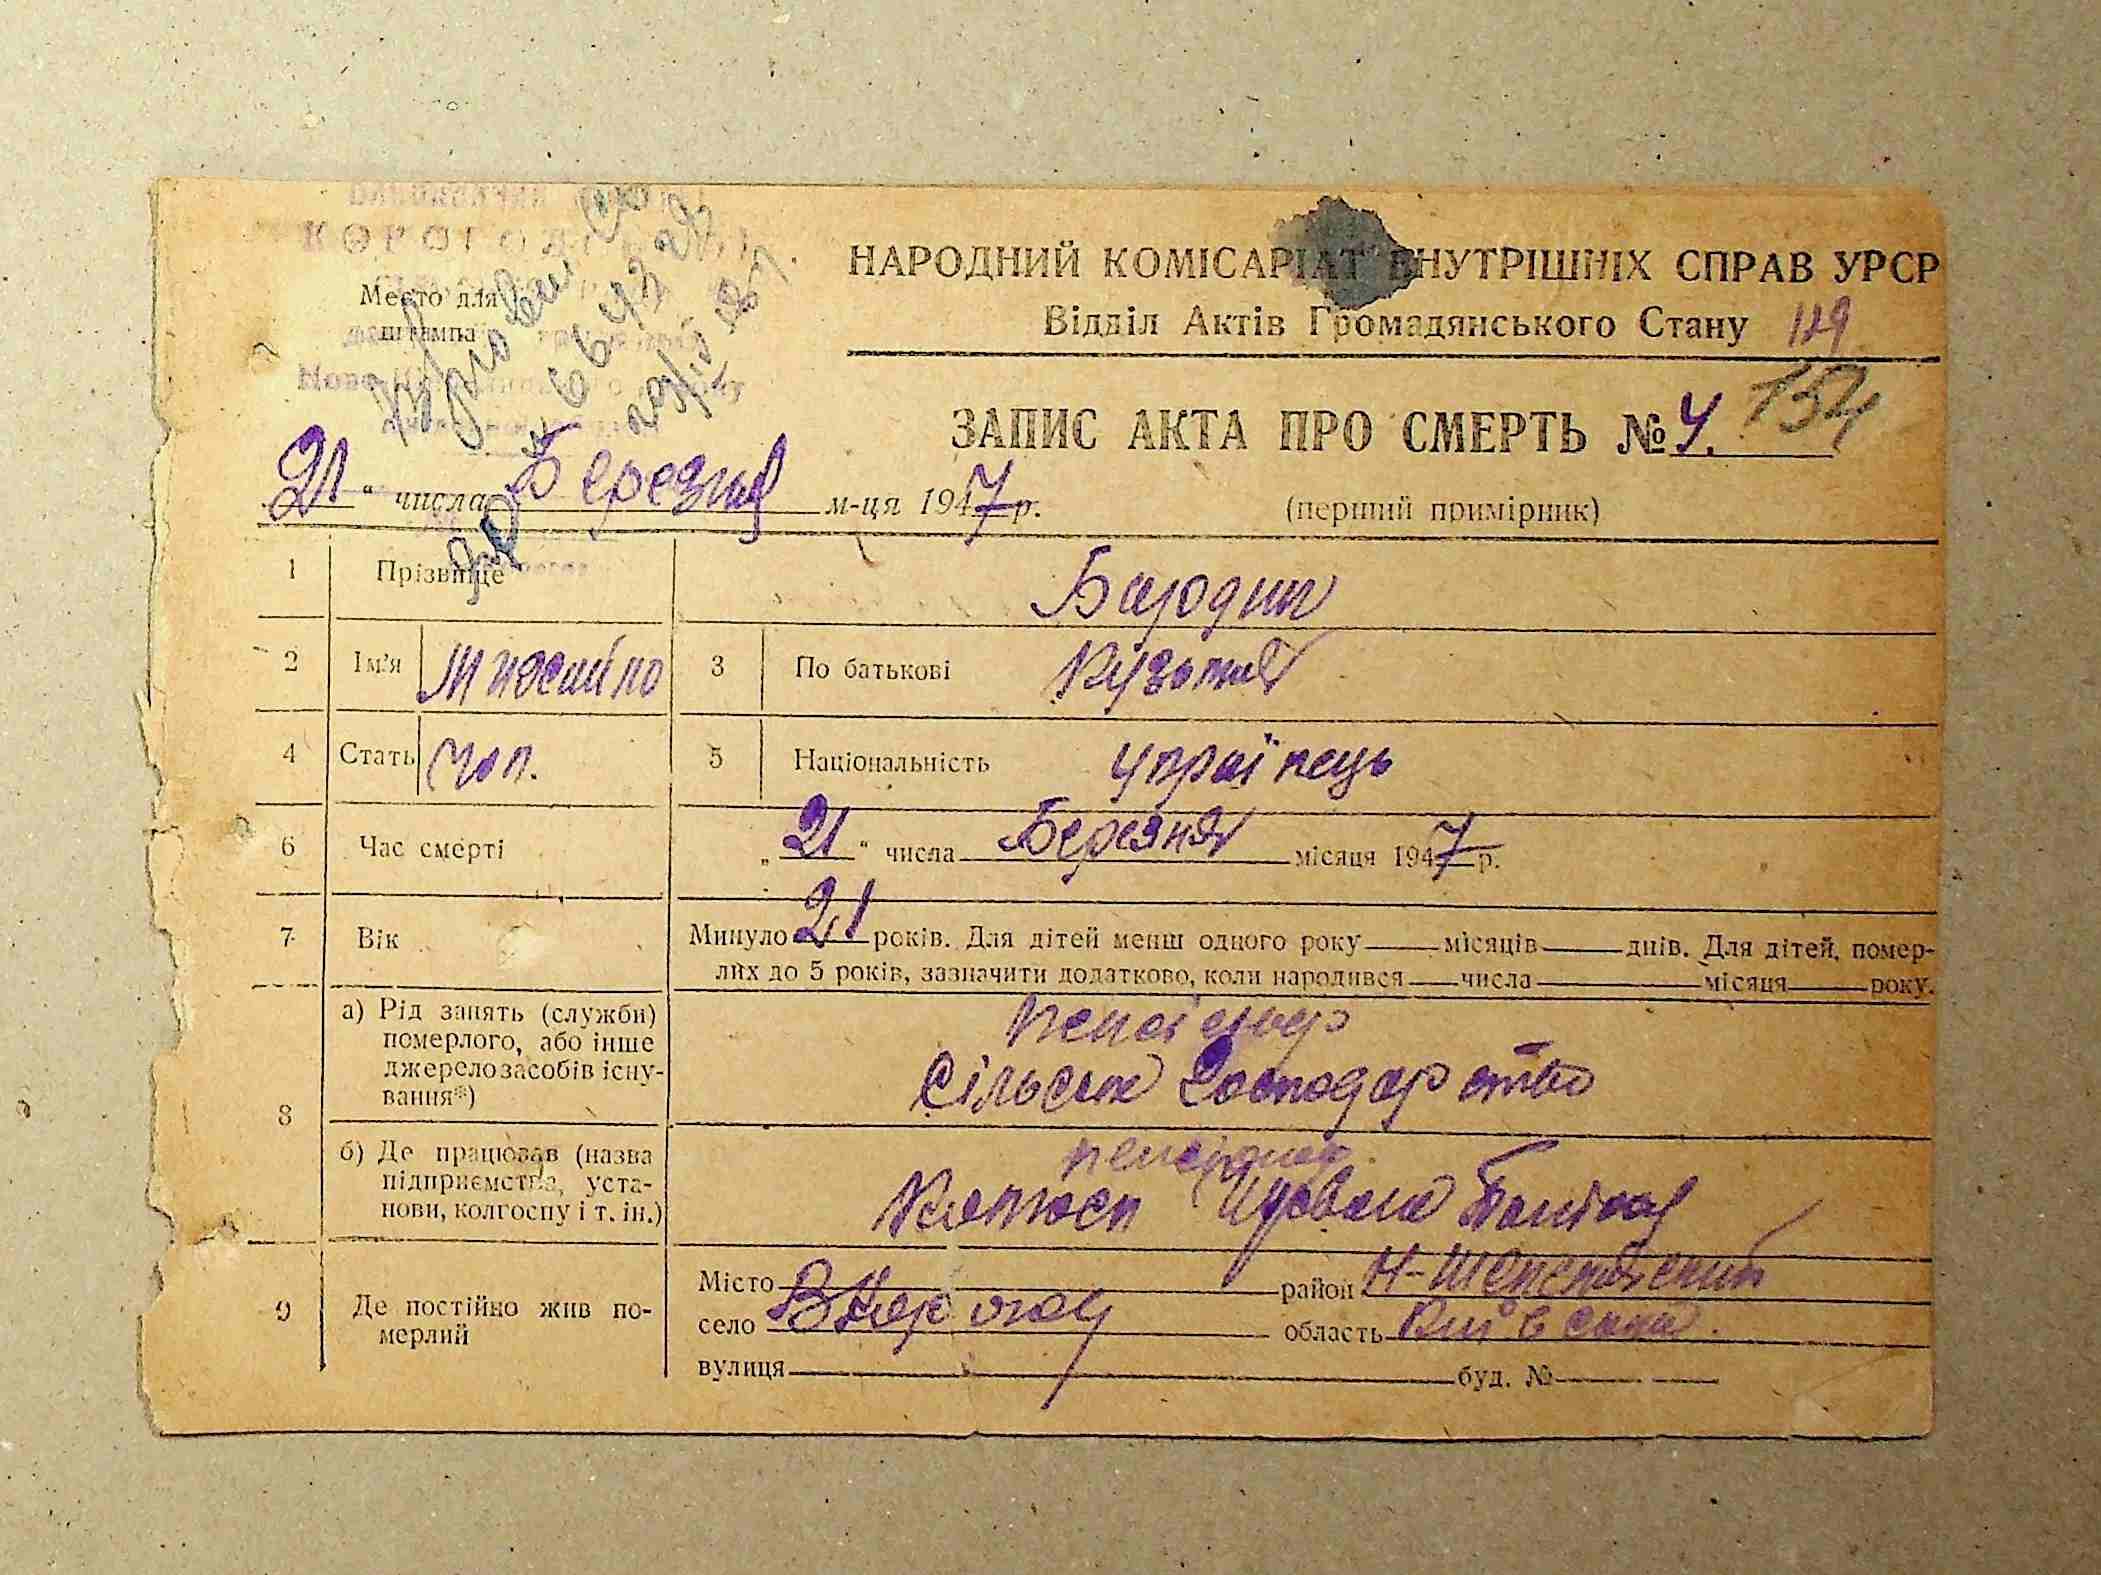 Место для
штампа
НАРОДНИЙ КОМІСАРІАТ ВНУТРІШНІХ СПРАВ УРСР
Відділ Актів Громадянського Стану 119
ЗАПИС АКТА ПРО СМЕРТЬ № 4. 154
21 " числа Березня м-ця 1947 р.
(перший примірник)
1 Прізвище Бародин
2 Ім'я Михайло 3 По батькові Кузьмич
4 Стать чол. 5 Національність українець
6 Час смерті „ 21 " числа Березня місяця 1947 р.
7 Вік Минуло 21 років. Для дітей менш одного року місяців днів. Для дітей, помер-
лих до 5 років, зазначити додатково, коли народився числа місяця року.
8 а) Рід занять (служби)
померлого, або інше
джерело засобів існу-
вання*)
пенсіонер
Сільське Господарство
б) Де працював (назва
підприємства, уста-
нови, колгоспу і т. ін.)
пенсіонер
Колгосп
9 Де постійно жив по-
мерлий
Місто район
село область Київська
вулиця буд. №